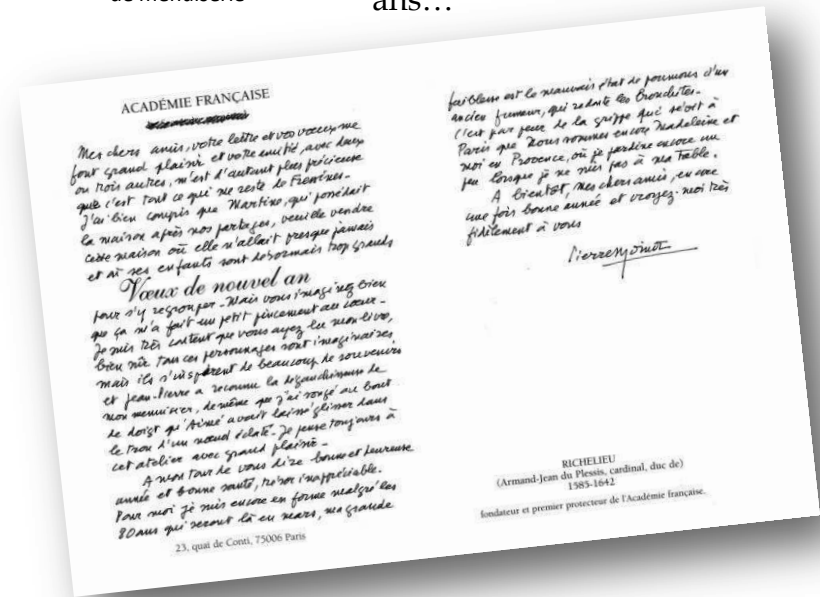 de menuiserie
ans…
ACADÉMIE FRANÇAISE
Mes chers amis, votre lettre et vos vœux me
font grand plaisir et votre amitié, avec deux
ou trois autres, m'est d'autant plus précieuse
que c'est tout ce qui me reste de
J'ai bien compris que Martine, qui possédait
la maison après nos partages, veuille vendre
cette maison où elle n'allait presque jamais
et où ses enfants sont désormais trop grands
Vœux de nouvel an
pour s'y regrouper. Mais vous imaginez bien
que ça m'a fait un petit pincement au cœur.
Je suis très content que vous ayez lu mon livre,
bien sûr tous ces personnages sont imaginaires
mais ils s'inspirent de beaucoup de souvenirs
et Jean-Pierre a reconnu la dégauchisseuse de
mon menuisier, de même que j'ai songé au bout
de doigt qu'Aimé avait laissé glisser dans
le trou d'un nœud éclaté. Je pense toujours à
cet atelier avec grand plaisir.
A mon tour de vous dire bonne et heureuse
année et bonne santé, trésor inappréciable.
Pour moi je suis encore en forme malgré les
80 ans qui seront là en mars, ma grande
23, quai de Conti, 75006 Paris
faiblesse est le mauvais état de poumons d'un
ancien fumeur, qui redoute les Bronchites.
C'est par peur de la grippe qui sévit à
Paris que nous sommes encore Madeleine et
moi en Provence, où je jardine encore un
peu lorsque je ne suis pas à ma table.
A bientôt, mes chers amis, encore
une fois bonne année et croyez-moi très
fidèlement à vous
Pierre Moinot
RICHELIEU
(Armand-Jean du Plessis, cardinal, duc de)
1585-1642
fondateur et premier protecteur de l'Académie française.